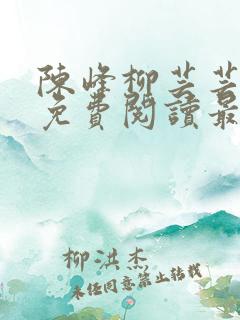 陳峰柳芸芸
免費閱讀最
柳洪杰
未经同意禁止转载